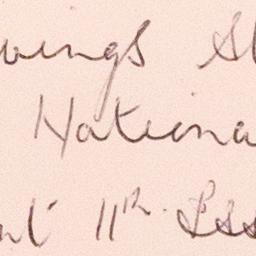 vings St
Nationa
nt 11th Iss